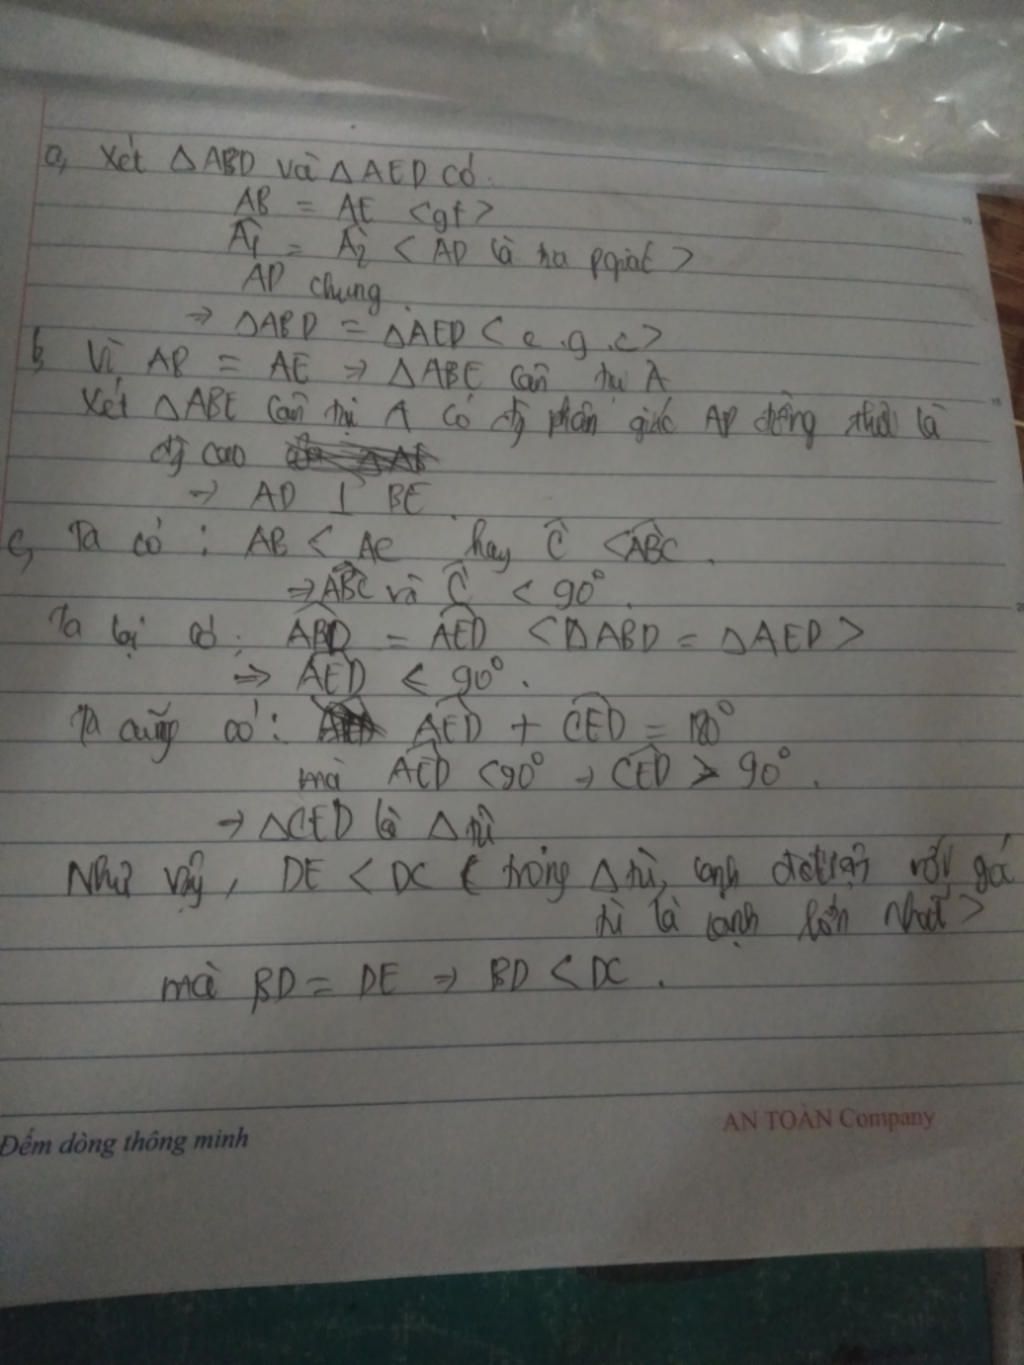 a, Xét △ABD và △AED có
AB = AE <gt>
Â1 = Â2 < AD là tia pgiác >
AD chung
⇒ △ABD = △AED < c.g.c >
b, Vì AB = AE ⇒ △ABE cân tại A
Xét △ABE cân tại A có đg phân giác AD đồng thời là
đg cao
→ AD ⊥ BE
c, Ta có : AB < AC hay Ĉ < ABC .
⇒ ABC và Ĉ < 90° .
Ta lại có : ABD = AED < △ABD = △AED >
⇒ AED < 90° .
Ta cũng có : AED + CED = 180°
mà AED < 90° → CED > 90° .
→ △CED là △ tù
Như vậy , DE < DC ( trong △ tù, cạnh đối diện với góc
tù là cạnh lớn nhất >
mà BD = DE ⇒ BD < DC .
Đếm dòng thông minh
AN TOÀN Company